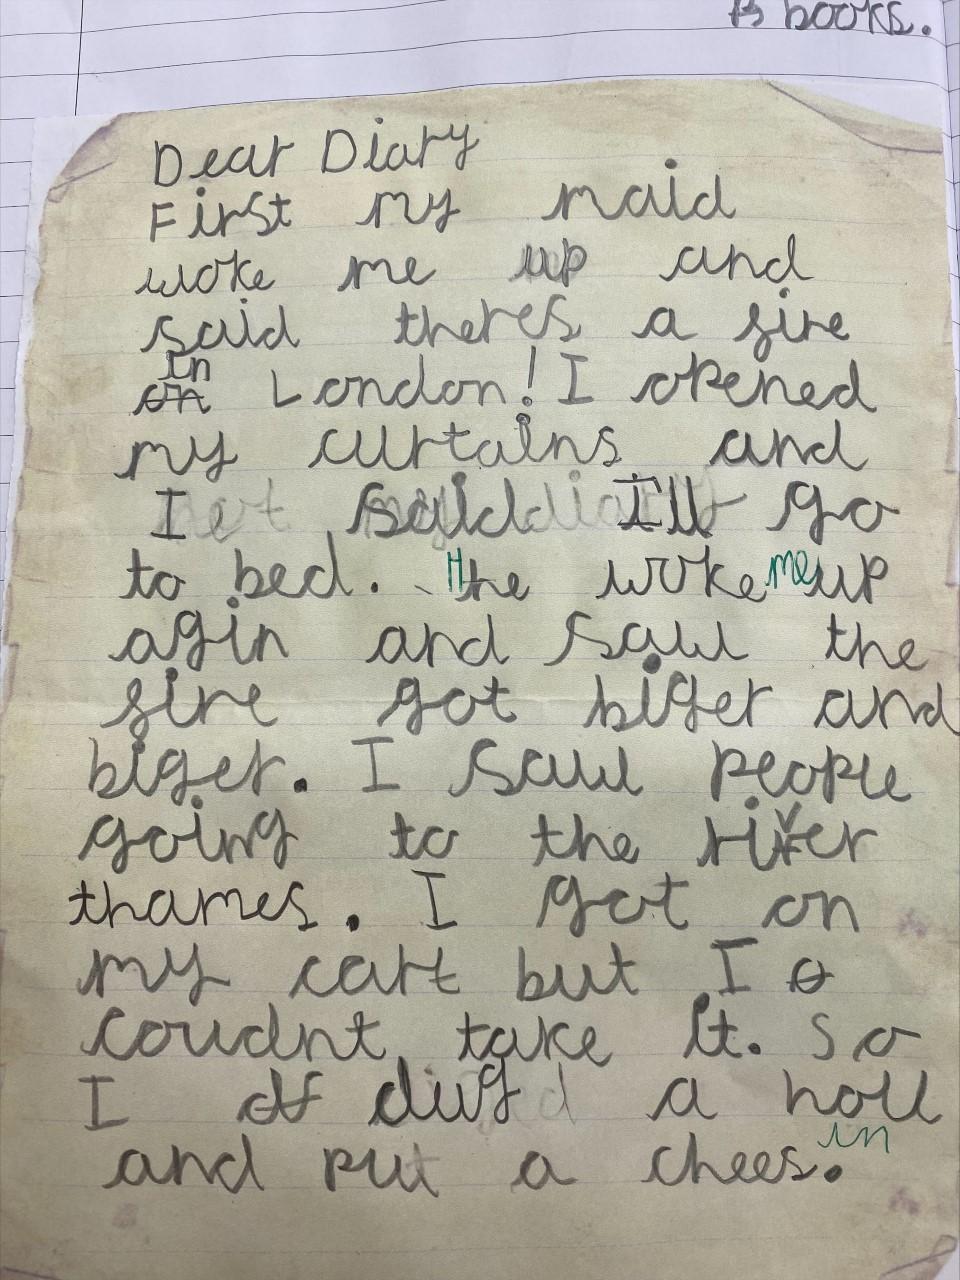 B books.
Dear Diary
First my maid
woke me up and
said theres a fire
in
on London! I opened
my curtains and
I said I'll go
to bed. He woke me up
agin and saw the
fire got biger and
biger. I saw people
going to the river
thames. I got on
my cart but I
coudnt take it. So
I dug a holl
in
and put a chees.